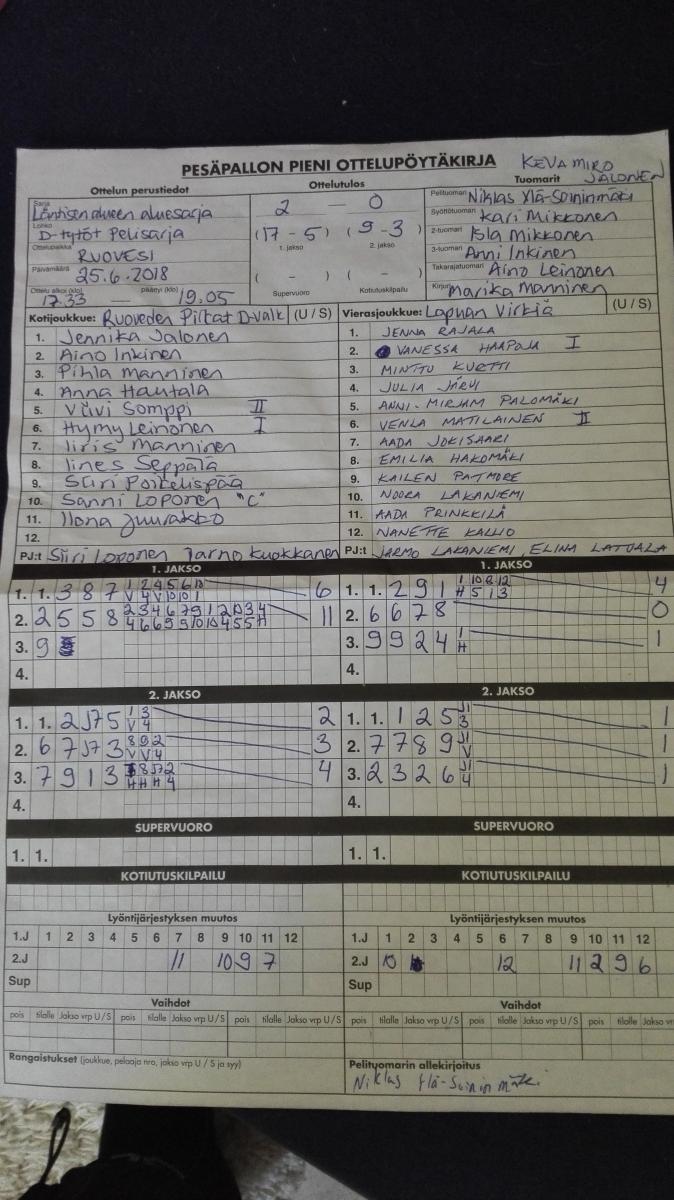 PESÄPALLON PIENI OTTELUPÖYTÄKIRJA
KEVA MIRO JALONEN
Ottelun perustiedot
Ottelutulos
Tuomarit
Sarja Läntisen alueen aluesarja
Lohko D-tytöt Pelisarja
Ottelupaikka RUOVESI
Päivämäärä 25.6.2018
Ottelu alkoi (klo) 17.33 — päättyi (klo) 19.05
2 — 0
(17 - 5) (9 - 3)
1. jakso 2. jakso
( - ) ( - )
Supervuoro Kotiutuskilpailu
Pelituomari Niklas Ylä-Soininmäki
Syöttötuomari Kari Mikkonen
2-tuomari Isla Mikkonen
3-tuomari Anni Inkinen
Takarajatuomari Aino Leinonen
Kirjuri Marika Manninen
Kotijoukkue: Ruoveden Pirkat D-valk (U / S)
1. Jennika Jalonen
2. Aino Inkinen
3. Pihla Manninen
4. Anna Hautala
5. Viivi Somppi II
6. Hymy Leinonen I
7. Iiris Manninen
8. Iines Seppälä
9. Siiri
10. Sanni Loponen "C"
11. Ilona
12.
PJ:t Siiri Loponen Jarno Kuokkanen
Vierasjoukkue: Lapuan Virkiä (U / S)
1. JENNA RAJALA
2. VANESSA HAAPOJA I
3. MINTTU KURTTI
4. JULIA JÄRVI
5. ANNI-MIRJAM PALOMÄKI
6. VENLA MATILAINEN II
7. AADA JOKISAARI
8. EMILIA HAKOMÄKI
9. KAILEN PATMORE
10. NOORA LAKANIEMI
11. AADA PRINKKILÄ
12. NANETTE KALLIO
PJ:t JARMO LAKANIEMI, ELINA LATVALA
1. JAKSO
1. 1. 3 8 7 6
2. 2 5 5 8 11
3. 9
4.
1. JAKSO
1. 1. 2 9 1 4
2. 6 6 7 8 0
3. 9 9 2 4 1
4.
2. JAKSO
1. 1. 2 J7 5 2
2. 6 7 J7 3 3
3. 7 9 1 3 4
4.
2. JAKSO
1. 1. 1 2 5 1
2. 7 7 8 9 1
3. 2 3 2 6 1
4.
SUPERVUORO
1. 1.
SUPERVUORO
1. 1.
KOTIUTUSKILPAILU
KOTIUTUSKILPAILU
Lyöntijärjestyksen muutos
1.J 1 2 3 4 5 6 7 8 9 10 11 12
2.J 11 10 9 7
Sup
Lyöntijärjestyksen muutos
1.J 1 2 3 4 5 6 7 8 9 10 11 12
2.J 10 12 11 2 9 6
Sup
Vaihdot
pois tilalle Jakso vrp U / S pois tilalle Jakso vrp U / S pois tilalle Jakso vrp U / S
Vaihdot
pois tilalle Jakso vrp U / S pois tilalle Jakso vrp U / S pois tilalle Jakso
Rangaistukset (joukkue, pelaaja nro, jakso vrp U / S ja syy)
Pelituomarin allekirjoitus
Niklas Ylä-Soininmäki